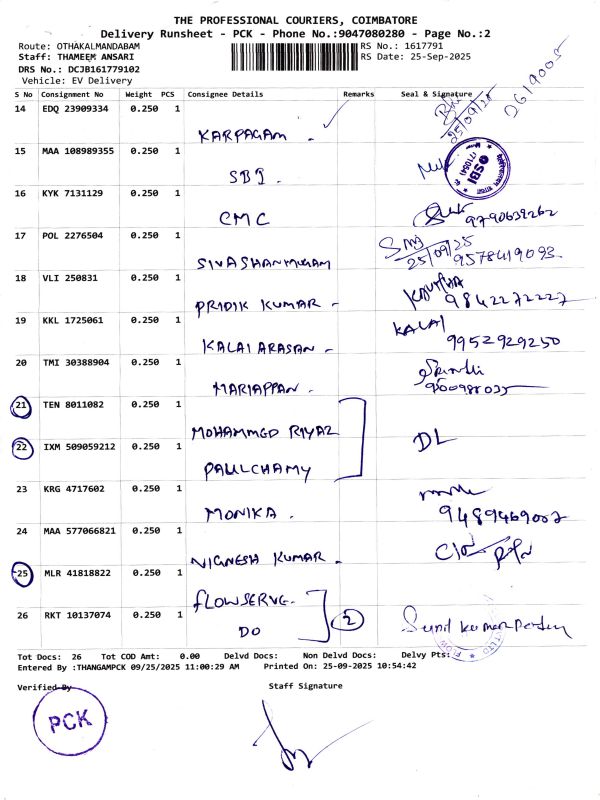 THE PROFESSIONAL COURIERS, COIMBATORE
Delivery Runsheet - PCK - Phone No.:9047080280 - Page No.:2
Route: OTHAKALMANDABAM RS No.: 1617791
Staff: THAMEEM ANSARI RS Date: 25-Sep-2025
DRS No.: DCJB161779102
Vehicle: EV Delivery
S No Consignment No Weight PCS Consignee Details Remarks Seal & Signature
25/09/25
14 EDQ 23909334 0.250 1
KARPAGAM .
15 MAA 108989355 0.250 1
SBI . SBI
16 KYK 7131129 0.250 1
CMC 9790639262
17 POL 2276504 0.250 1
25/09/25
SIVASHANMUGAM 9578419093
18 VLI 250831 0.250 1
KAVITHA
PRIDIK KUMAR - 9842272227
19 KKL 1725061 0.250 1
KALAI
KALAI ARASAN - 9952929250
20 TMI 30388904 0.250 1
MARIAPPAN .
21 TEN 8011082 0.250 1
MOHAMMED RIYAZ
DL
22 IXM 509059212 0.250 1
PAULCHAMY
23 KRG 4717602 0.250 1
MONIKA . 9489469002
24 MAA 577066821 0.250 1
VIGNESH KUMAR - C/O
25 MLR 41818822 0.250 1
FLOWSERVE.
2
26 RKT 10137074 0.250 1
DO Sunil Kumar
Tot Docs: 26 Tot COD Amt: 0.00 Delvd Docs: Non Delvd Docs: Delvy Pts:
Entered By :THANGAMPCK 09/25/2025 11:00:29 AM Printed On: 25-09-2025 10:54:42
Verified By Staff Signature
PCK